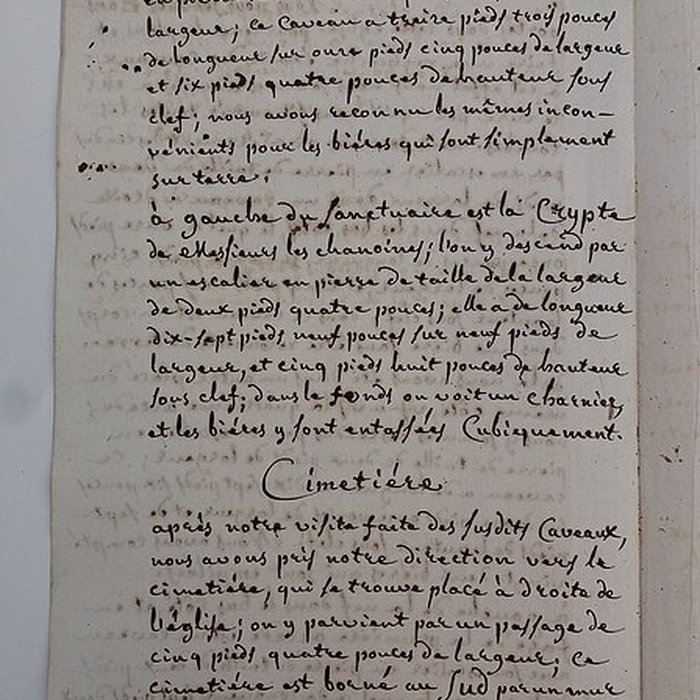 largeur; ce Caveau a treize pieds trois pouces
de longueur sur onze pieds cinq pouces de largeur
et six pieds quatre pouces de hauteur sous
clef; nous avons reconnu les mêmes incon-
vénients pour les biéres qui sont simplement
sur terre.
à gauche du sanctuaire est la Crypte
de Messieurs les chanoines; l'on y descend par
un escalier en pierre de taille de la largeur
de deux pieds quatre pouces; elle a de longueur
dix-sept pieds neuf pouces sur neuf pieds de
largeur, et cinq pieds huit pouces de hauteur
sous clef; dans le fonds on voit un charnier,
et les biéres y sont entassées Cubiquement.
Cimetiére
après notre visite faite des susdits Caveaux,
nous avons pris notre direction vers le
cimetiére, qui se trouve placé à droite de
l'église; on y parvient par un passage de
cinq pieds quatre pouces de largeur; ce
cimetiére est borné au Sud par un mur